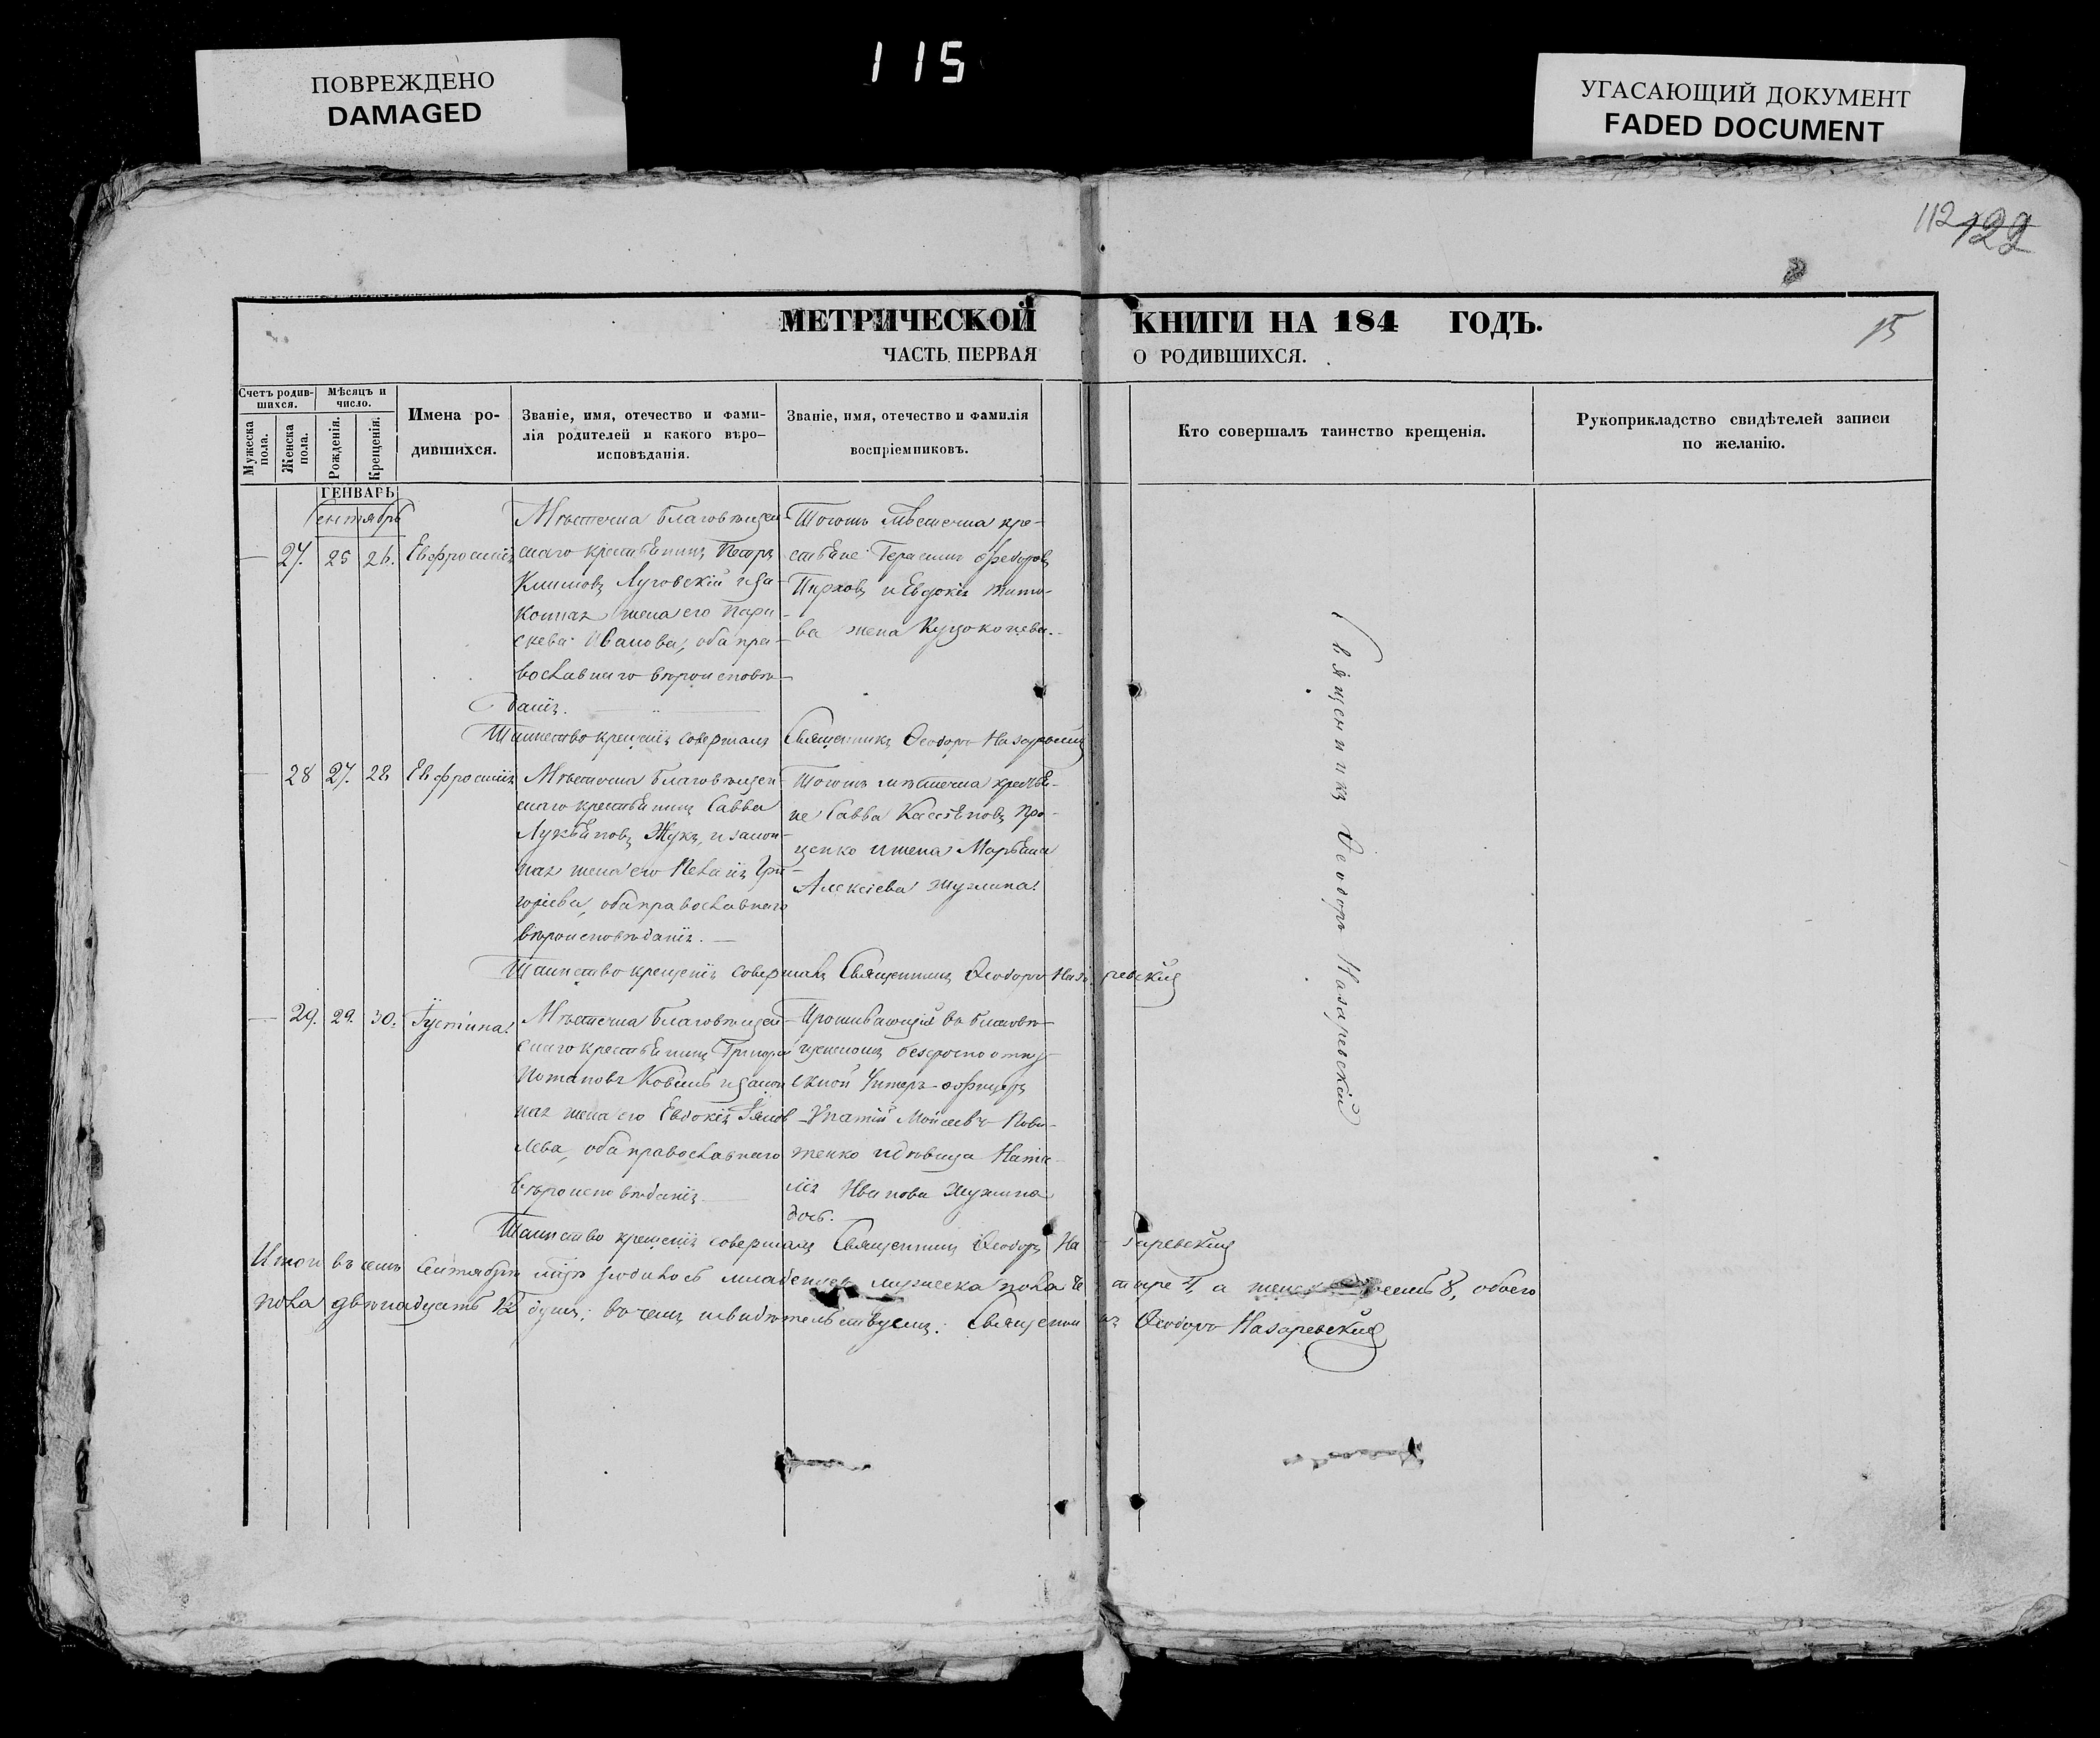 ПОВРЕЖДЕНО
DAMAGED
115
УГАСАЮЩИЙ ДОКУМЕНТ
FADED DOCUMENT
112 122
МЕТРИЧЕСКОЙ КНИГИ НА 184 ГОДЪ.
15
ЧАСТЬ ПЕРВАЯ О РОДИВШИХСЯ.
Счетъ родив-
шихся.
Мужеска пола.
Женска пола.
Мѣсяцъ и
число.
Рожденія.
Крещенія.
Имена ро-
дившихся.
Званіе, имя, отечество и фами-
лія родителей и какого вѣро-
исповѣданія.
Званіе, имя, отечество и фамилія
воспріемниковъ.
Кто совершалъ таинство крещенія.
Рукоприкладство свидѣтелей записи
по желанію.
ГЕНВАРЬ
Сентябрь
— 27. 25 26. Евфросинія
Мѣстечка Благовѣщен-
скаго крестьянинъ Петръ
Климовъ Луговскій и за-
конная жена его Пара-
скева Иванова, оба пра-
вославнаго вѣроисповѣ-
данія.
Тогожъ мѣстечка кре-
стьяне Герасимъ Федоровъ
и Евдокія Тито-
ва жена
Таинство крещенія совершалъ Священникъ Ѳеодоръ Назаревскій
— 28 27. 28 Евфросинія
Мѣстечка Благовѣщен-
скаго крестьянинъ Савва
Лукьяновъ Жукъ, и закон-
ная жена его Пелагія Гри-
горіева, оба православнаго
вѣроисповѣданія. —
Тогожъ мѣстечка крестья-
не Савва Касьяновъ Про-
ценко и жена Марьяна
Алексіева
Таинство крещенія совершалъ Священникъ Ѳеодоръ Назаревскій
— 29. 29. 30. Іустина.
Мѣстечка Благовѣщен-
скаго крестьянинъ Григорій
Потаповъ и закон
ная жена его Евдокія
лева, оба православнаго
вѣроисповѣданія
Проживающій въ Благовѣ-
щенскомъ безсрочно отпу-
скной Унтеръ-офицеръ
Ипатій Моисеевъ
женко и дѣвица Ната-
лія Иванова
дочь.
Таинство крещенія совершалъ Священникъ Ѳеодоръ Назаревскій
Священникъ Ѳеодоръ Назаревскій
Итого въ семъ Сентябрѣ мцѣ родилось младенцевъ мужеска пола четыре 4, а женска восемь 8, обоего
пола двѣнадцать 12 душъ; въ чемъ и свидѣтельствуемъ: Священникъ Ѳеодоръ Назаревскій